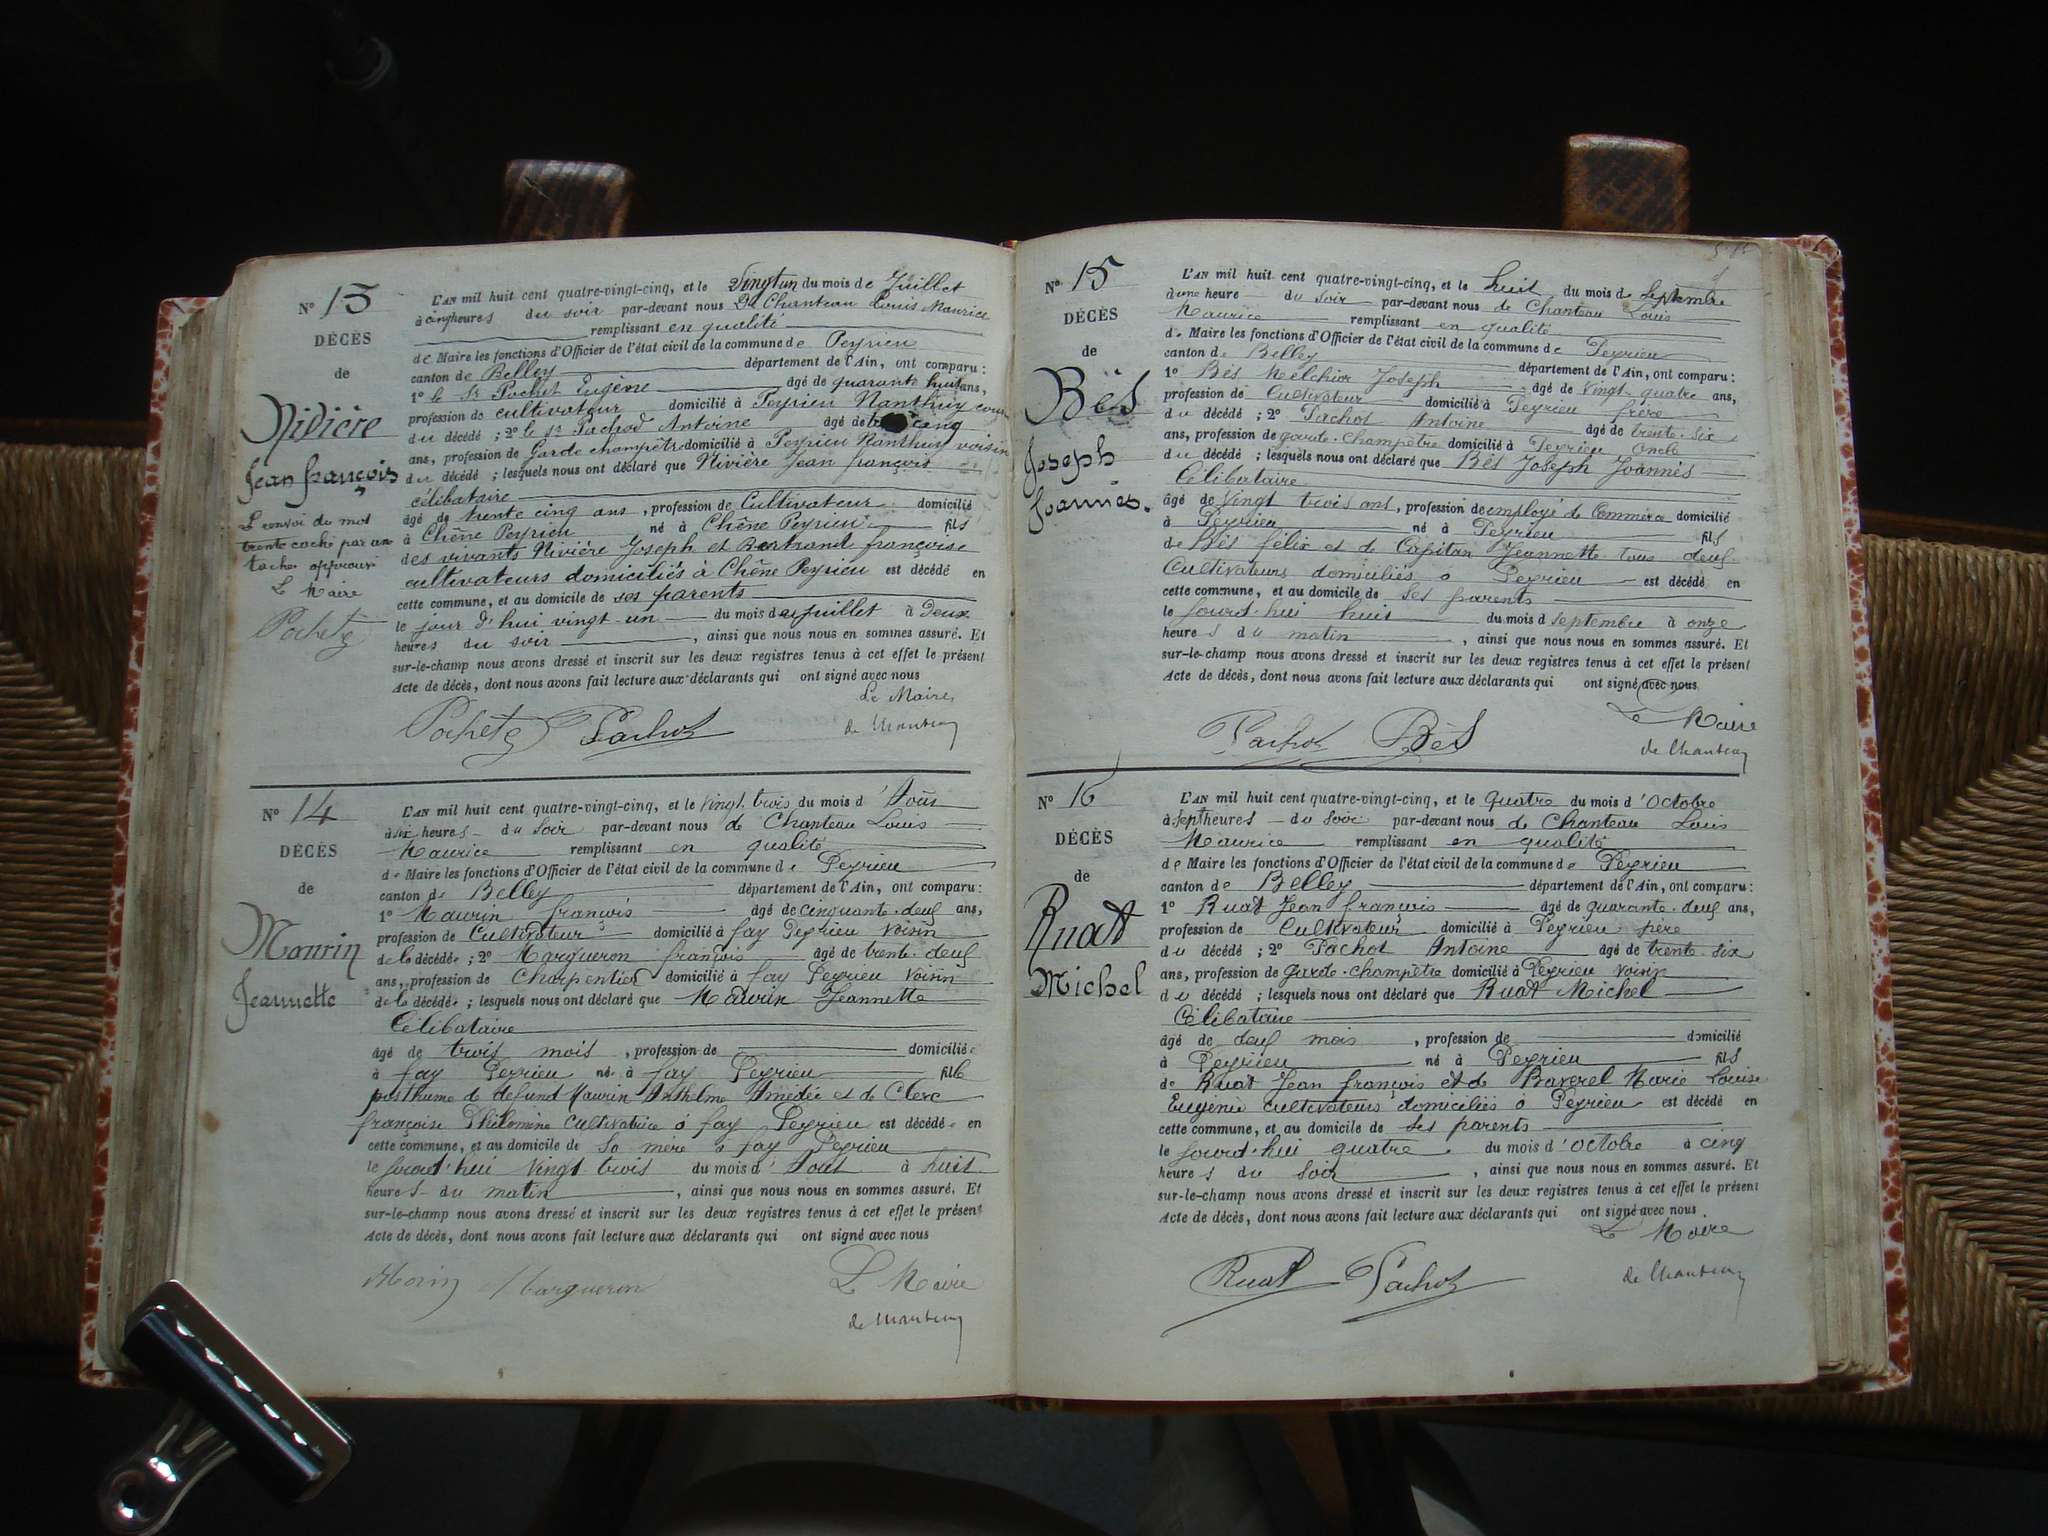 N° 13
DÉCÈS
de
Rivière
Jean françois
Le renvoi du mot
trente caché par une
tache approuvé
Le Maire
Pochet
L'AN mil huit cent quatre-vingt-cinq, et le Vingt un du mois de Juillet
à cinq heures du soir par-devant nous De Chanteau Louis Maurice
remplissant en qualité
de Maire les fonctions d'Officier de l'état civil de la commune de Peyrieu
canton de Belley département de l'Ain, ont comparu :
1° le Sr Pochet Eugène âgé de quarante huit ans,
profession de cultivateur domicilié à Peyrieu Nanthuy cousin
du décédé ; 2° le Sr Pachod Antoine âgé de cinq
ans, profession de Garde champêtre domicilié à Peyrieu Nanthuy voisin
du décédé ; lesquels nous ont déclaré que Rivière Jean françois
célibataire
âgé de trente cinq ans, profession de Cultivateur domicilié
à Chêne Peyrieu né à Chêne Peyrieu fils
des vivants Rivière Joseph et Bertrand françoise
cultivateurs domiciliés à Chêne Peyrieu est décédé en
cette commune, et au domicile de ses parents
le jour d'hui vingt-un du mois de juillet à Deux
heures du soir, ainsi que nous nous en sommes assuré. Et
sur-le-champ nous avons dressé et inscrit sur les deux registres tenus à cet effet le présent
Acte de décès, dont nous avons fait lecture aux déclarants qui ont signé avec nous
Le Maire
Pochet Pachot de Chanteau
N° 14
DÉCÈS
de
Maurin
Jeannette
L'AN mil huit cent quatre-vingt-cinq, et le Vingt trois du mois d'Août
à six heures du Soir par-devant nous de Chanteau Louis
Maurice remplissant en qualité
de Maire les fonctions d'Officier de l'état civil de la commune de Peyrieu
canton de Belley département de l'Ain, ont comparu :
1° Maurin françois âgé de cinquante-deux ans,
profession de Cultivateur domicilié à fay Peyrieu Voisin
de la décédée ; 2° Margueron françois âgé de trente-deux
ans, profession de Charpentier domicilié à fay Peyrieu Voisin
de la décédée ; lesquels nous ont déclaré que Maurin Jeannette
Célibataire
âgé de trois mois, profession de domiciliée
à fay Peyrieu née à fay Peyrieu fille
posthume de defund Maurin Anthelme Amédée et de Clerc
françoise Philomine Cultivatrice à fay Peyrieu est décédée en
cette commune, et au domicile de Sa mère à fay Peyrieu
le jourd'hui Vingt trois du mois d'Août à huit
heures du matin, ainsi que nous nous en sommes assuré. Et
sur-le-champ nous avons dressé et inscrit sur les deux registres tenus à cet effet le présent
Acte de décès, dont nous avons fait lecture aux déclarants qui ont signé avec nous
Morin Margueron Le Maire
de Chanteau
N° 15
DÉCÈS
de
Bès
Joseph
Joannès.
L'AN mil huit cent quatre-vingt-cinq, et le huit du mois de Septembre
à une heure du Soir par-devant nous de Chanteau Louis
Maurice remplissant en qualité
de Maire les fonctions d'Officier de l'état civil de la commune de Peyrieu
canton de Belley département de l'Ain, ont comparu :
1° Bès Melchior Joseph âgé de Vingt-quatre ans,
profession de Cultivateur domicilié à Peyrieu frère
du décédé ; 2° Pachot Antoine âgé de trente-six
ans, profession de garde-champêtre domicilié à Peyrieu Oncle
du décédé ; lesquels nous ont déclaré que Bès Joseph Joannès
Célibataire
âgé de Vingt trois ans, profession de employé de Commerce domicilié
à Peyrieu né à Peyrieu fils
de Bès félix et de Capitan Jeannette tous deux
Cultivateurs domiciliés à Peyrieu est décédé en
cette commune, et au domicile de Ses parents
le jourd'hui huit du mois d septembre à onze
heures du matin, ainsi que nous nous en sommes assuré. Et
sur-le-champ nous avons dressé et inscrit sur les deux registres tenus à cet effet le présent
Acte de décès, dont nous avons fait lecture aux déclarants qui ont signé avec nous
Le Maire
Pachot Bès de Chanteau
N° 16
DÉCÈS
de
Ruat
Michel
L'AN mil huit cent quatre-vingt-cinq, et le quatre du mois d'Octobre
à sept heures du Soir par-devant nous de Chanteau Louis
Maurice remplissant en qualité
de Maire les fonctions d'Officier de l'état civil de la commune de Peyrieu
canton de Belley département de l'Ain, ont comparu :
1° Ruat Jean françois âgé de quarante-deux ans,
profession de Cultivateur domicilié à Peyrieu père
du décédé ; 2° Pachot Antoine âgé de trente-six
ans, profession de garde-champêtre domicilié à Peyrieu Voisin
du décédé ; lesquels nous ont déclaré que Ruat Michel
Célibataire
âgé de deux mois, profession de domicilié
à Peyrieu né à Peyrieu fils
de Ruat Jean françois et de Baverel Marie Louise
Eugénie cultivateurs domiciliés à Peyrieu est décédé en
cette commune, et au domicile de Ses parents
le jourd'hui quatre du mois d'Octobre à cinq
heures du Soir, ainsi que nous nous en sommes assuré. Et
sur-le-champ nous avons dressé et inscrit sur les deux registres tenus à cet effet le présent
Acte de décès, dont nous avons fait lecture aux déclarants qui ont signé avec nous
Le Maire
Ruat Pachot de Chanteau